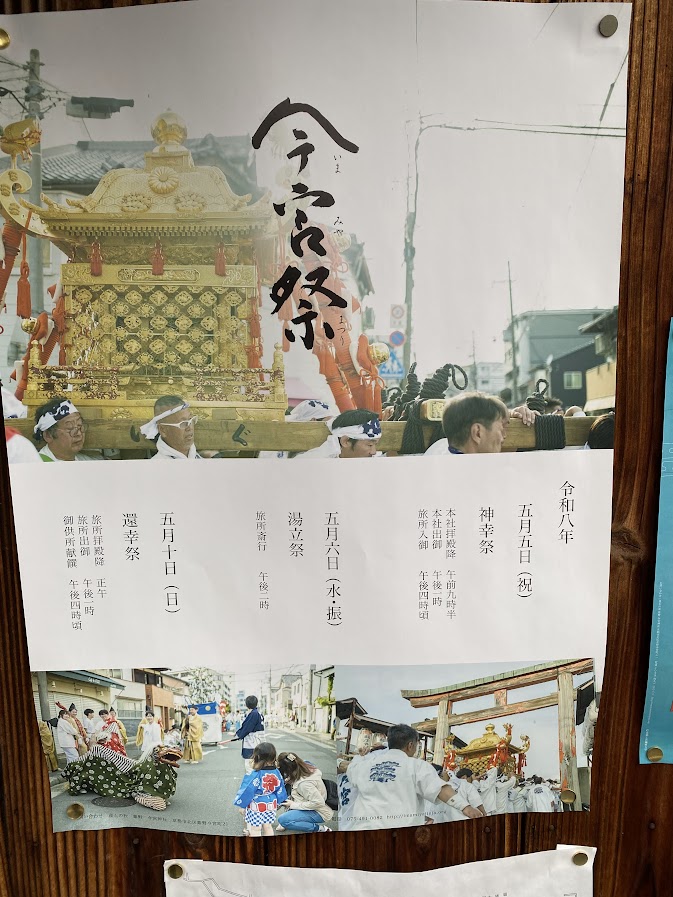 今宮祭
いま
みや
まつり
令和八年
五月五日（祝）
神幸祭
本社拝殿降　午前九時半
本社出御　午後一時
旅所入御　午後四時頃
五月六日（水・振）
湯立祭
旅所斎行　午後二時
五月十日（日）
還幸祭
旅所拝殿降　正午
旅所出御　午後一時
御供所献饌　午後四時頃